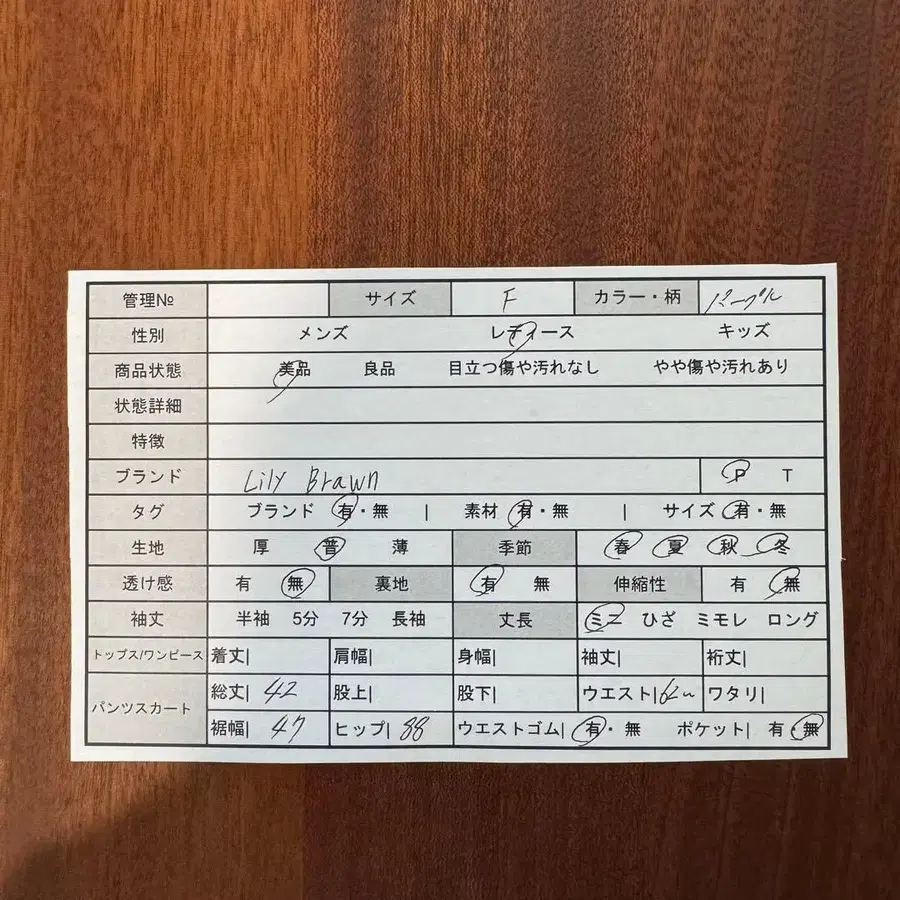 管理№ サイズ F カラー・柄 パープル
性別 メンズ レディース キッズ
商品状態 美品 良品 目立つ傷や汚れなし やや傷や汚れあり
状態詳細
特徴
ブランド Lily Brawn P T
タグ ブランド 有・無 | 素材 有・無 | サイズ 有・無
生地 厚 普 薄 季節 春 夏 秋 冬
透け感 有 無 裏地 有 無 伸縮性 有 無
袖丈 半袖 5分 7分 長袖 丈長 ミニ ひざ ミモレ ロング
トップス/ワンピース 着丈| 肩幅| 身幅| 袖丈| 裄丈|
パンツスカート 総丈| 42 股上| 股下| ウエスト| ワタリ|
裾幅| 47 ヒップ| 88 ウエストゴム| 有・無 ポケット| 有・無